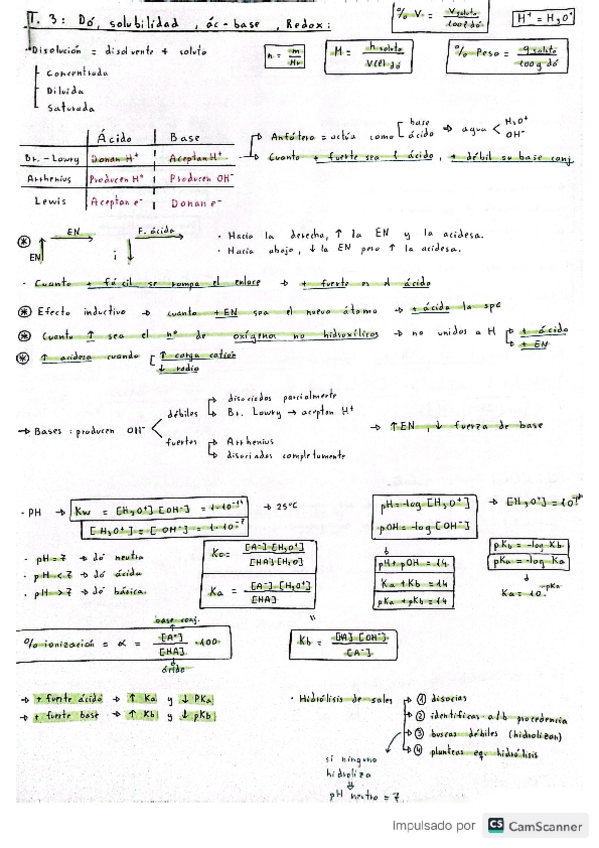 T. 3: Dó, solubilidad, ác-base, Redox:
% V = V soluto / 100 l dó
H⁺ = H₃O⁺
→ Disolución = disolvente + soluto
n = m / Mr
M = n soluto / V(l) dó
% Peso = g soluto / 100 g dó
Concentrada
Diluida
Saturada
Ácido Base
Br.-Lowry Donan H⁺ Aceptan H⁺
Arrhenius Producen H⁺ Producen OH⁻
Lewis Aceptan e⁻ Donan e⁻
→ Anfótero = actúa como base ácido ⇒ agua < H₃O⁺ OH⁻
→ Cuanto + fuerte sea l ácido, + débil su base conj.
EN F. ácido
EN
· Hacia la derecha, ↑ la EN y la acidesa.
· Hacia abajo, ↓ la EN pero ↑ la acidesa.
· Cuanto + fácil se rompa el enlace → + fuerte es el ácido
⊛ Efecto inductivo → cuanto + EN sea el nuevo átomo → + ácido la spc
⊛ Cuanto ↑ sea el nº de oxígenos no hidroxílicos → no unidos a H → + ácido
→ + EN
⊛ ↑ acidesa cuando ↑ carga catión
↓ radio
débiles → disociados parcialmente
→ Br. Lowry → aceptan H⁺
→ Bases: producen OH⁻
→ ↑ EN, ↓ fuerza de base
fuertes → Arrhenius
→ disociados completamente
· PH → Kw = [H₃O⁺][OH⁻] = 1·10⁻¹⁴ → 25ºC
[H₃O⁺] = [OH⁻] = 1·10⁻⁷
pH = -log [H₃O⁺]
pOH = -log [OH⁻]
· pH = 7 → dó neutra
· pH < 7 → dó ácida
· pH > 7 → dó básica.
Kc = [A⁻][H₃O⁺] / [HA][H₂O]
Ka = [A⁻][H₃O⁺] / [HA]
pH + pOH = 14
Ka + Kb = 14
pKa + pKb = 14
pKb = -log Kb
pKa = -log Ka
Ka = 10^-pKa
base conj.
% ionización = α = [A⁻] / [HA] · 100
ácido
Kb = [HA][OH⁻] / [A⁻]
→ + fuerte ácido → ↑ Ka y ↓ PKa
→ + fuerte base → ↑ Kb y ↓ pKb
· Hidrólisis de sales → ① disocias
→ ② identificas a/b procedencia
→ ③ buscas débiles (hidrolizan)
→ ④ planteas eq. hidrólisis
si ninguno
hidroliza
pH neutro = 7
Impulsado por CS CamScanner